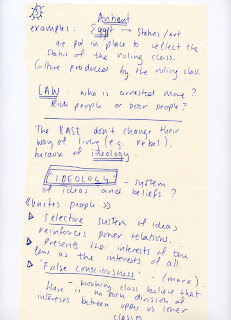 Antiant
examples: Egypt → statues/art
are put in place to reflect the
status of the ruling class.
Culture produced by the ruling class.
LAW: who is arrested more?
Rich people or poor people?
The BASE don't change their
way of living (e.g. rebel),
because of ideology.
IDEOLOGY - system
of ideas and beliefs?
unites people >>
selective system of ideas
reinforces power relations.
Presents the interests of the
few as the interests of all.
'False consciousness' - (marx).
- working class believe that
there is no such division of
interests between upper vs lower
classes